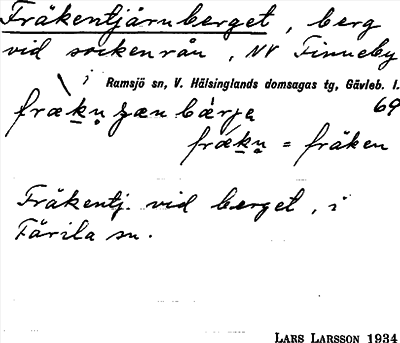 Fräkentjärnberget, berg
vid sockenrån, NV Finneby
i Ramsjö sn, V. Hälsinglands domsagas tg, Gävleb. l.
69
frækn̥ bärjə
frækn̥ = fräken
Fräkentj. vid berget, i
Färila sn.
LARS LARSSON 1934